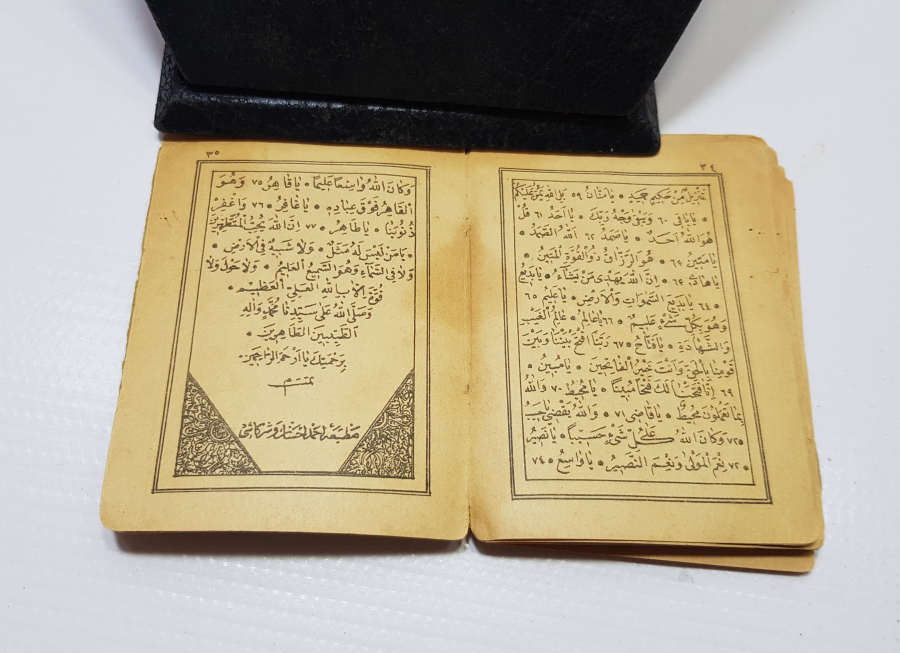 ٣٤
عَزِيزٌ مِنْ حَكِيمٍ حَمِيدٍ * يَا مَنَّانُ ٥٩ بَلِ اللّٰهُ يَمُنُّ عَلَيْكُمْ
* يَا بَاقِي ٦٠ وَيَبْقَى وَجْهُ رَبِّكَ * يَا اَحَدُ ٦١ قُلْ
هُوَ اللّٰهُ اَحَدٌ * يَا صَمَدُ ٦٢ اَللّٰهُ الصَّمَدُ *
يَا مَتِينُ ٦٣ * هُوَ الرَّزَّاقُ ذُو الْقُوَّةِ الْمَتِينُ *
يَا هَادِي ٦٤ * اِنَّ اللّٰهَ يَهْدِي مَنْ يَشَاءُ * يَا بَدِيعُ
* ٦٤ يَا بَدِيعَ السَّمٰوَاتِ وَالْاَرْضِ * يَا عَلِيمُ ٦٥
وَهُوَ بِكُلِّ شَيْءٍ عَلِيمٌ * ٦٦ يَا عَالِمُ * عَالِمُ الْغَيْبِ
وَالشَّهَادَةِ * يَا فَتَّاحُ * ٦٧ رَبَّنَا افْتَحْ بَيْنَنَا وَبَيْنَ
قَوْمِنَا بِالْحَقِّ وَاَنْتَ خَيْرُ الْفَاتِحِينَ * يَا مُبِينُ *
٦٩ اِنَّا فَتَحْنَا لَكَ فَتْحًا مُبِينًا * يَا مُحِيطُ ٧٠ وَاللّٰهُ
بِمَا تَعْمَلُونَ مُحِيطٌ * يَا قَاضِي ٧١ * وَاللّٰهُ يَقْضِي
٧٢* وَكَانَ اللّٰهُ عَلَى كُلِّ شَيْءٍ حَسِيبًا * يَا نَصِيرُ
٧٣* نِعْمَ الْمَوْلَى وَنِعْمَ النَّصِيرُ * يَا وَاسِعُ * ٧٤
٣٥
وَكَانَ اللّٰهُ وَاسِعًا عَلِيمًا * يَا قَاهِرُ ٧٥ وَهُوَ
الْقَاهِرُ فَوْقَ عِبَادِهِ * يَا غَافِرُ * ٧٦ وَاغْفِرْ
ذُنُوبَنَا * يَا طَاهِرُ * ٧٧ اِنَّ اللّٰهَ يُحِبُّ الْمُتَطَهِّرِينَ
* يَا مَنْ لَيْسَ لَهُ مَثَلٌ * وَلَا شَبِيهٌ فِي الْاَرْضِ *
وَلَا فِي السَّمَاءِ وَهُوَ السَّمِيعُ الْعَلِيمُ * وَلَا حَوْلَ وَلَا
قُوَّةَ اِلَّا بِاللّٰهِ الْعَلِيِّ الْعَظِيمِ *
وَصَلَّى اللّٰهُ عَلَى سَيِّدِنَا مُحَمَّدٍ وَاٰلِهِ
الطَّيِّبِينَ الطَّاهِرِينَ *
بِرَحْمَتِكَ يَا اَرْحَمَ الرَّاحِمِينَ
تَمَّتْ م
مطبعهٔ احمد احسان وشركاسى